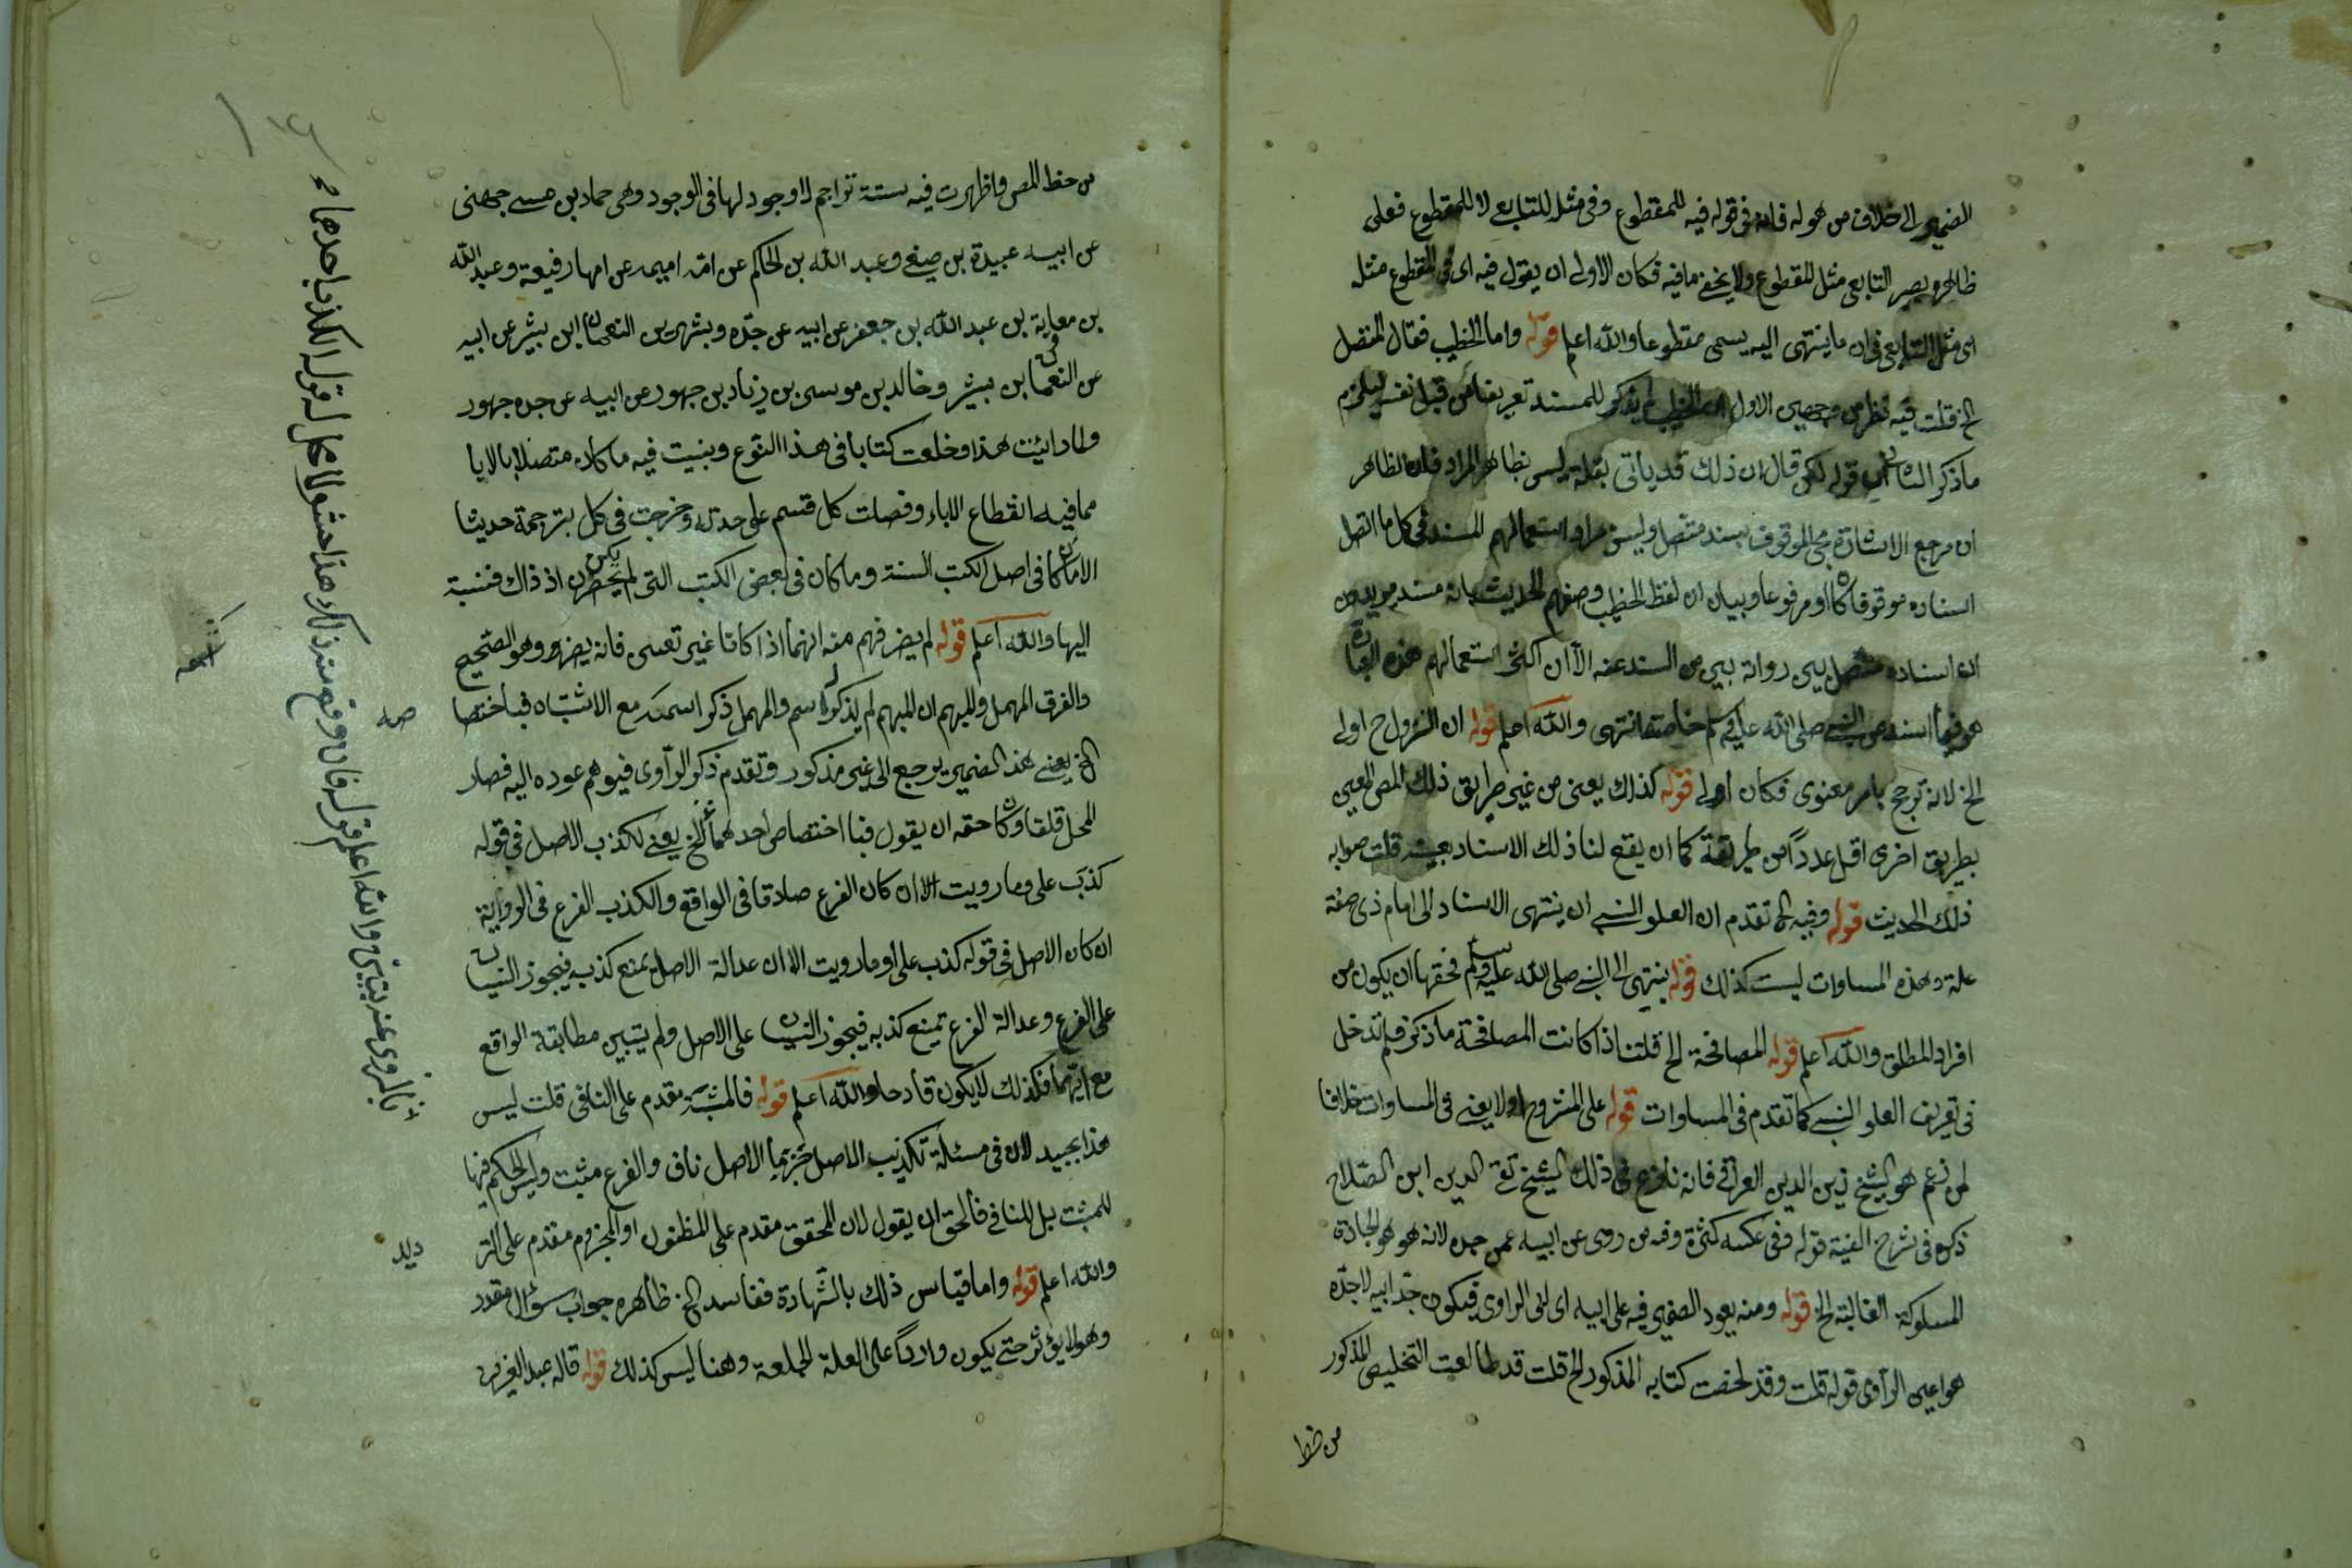 الضمير الى خلاف من هو له فانه فى قوله فيه للمقطوع وفى مثله للتابعى لا للمقطوع فعلى
ظاهره يصير التابعى مثل المقطوع ولا يخفى ما فيه فكان الاولى ان يقول فيه اى فى المقطوع مثله
اى مثل التابعى فى ان ما ينتهى اليه يسمى مقطوعا والله اعلم قوله واما الخطيب فقال المتصل
الخ قلت فيه نظر من وجهين الاول ان الخطيب لم يذكر للمسند تعريفا من قبل نفسه ليلزم
ما ذكر الثانى ان قوله لكن قال ان ذلك قد ياتى بقلة ليس بظاهر المراد فان الظاهر
ان مرجع الاشارة مجى الموقوف بسند متصل وليس مراد استعمالهم المسند فى كل ما اتصل
اسناده موقوفا كان او مرفوعا وبيان ان لفظ الخطيب وصفهم الحديث بانه مسند يريدون
ان اسناده متصل بين رواته بين من اسند عنه الا ان اكثر استعمالهم هذه العبارة
هو فيما اسند عن النبى صلى الله عليه وسلم خاصة انتهى والله اعلم قوله ان النزول ح اولى
الخ لانه ترجح بامر معنوى فكان اولى قوله كذلك يعنى من غير طريق ذلك المص المعين
بطريق اخرى اقل عددا من طريقه كما ان يقع لنا ذلك الاسناد بعينه قلت صوابه
ذلك الحديث قوله وفيه الخ تقدم ان العلو النسبى ان ينتهى الاسناد الى امام ذى صفة
علة وهذه المساوات ليست كذلك قوله ينتهى الى النبى صلى الله عليه وسلم فحقها ان يكون من
افراد المطلق والله اعلم قوله المصافحة الخ قلت اذا كانت المصافحة ما ذكر فلم تدخل
فى تعريف العلو النسبى كما تقدم فى المساوات قوله على المشروح اولا يعنى فى المساوات خلافا
لمن زعم هو الشيخ زين الدين العراقى فانه نازع فى ذلك الشيخ تقى الدين ابن الصلاح
ذكره فى شرح الفية قوله وفى عكسه كثرة ومنه من روى عن ابيه عن جده لانه هو الجادة
المسلوكة الغالبة الخ قوله ومنه يعود الضمير فيه على ابيه اى ابى الراوى فيكون جد ابيه لا جده
هو اعنى الراوى قوله قلت وقد لخصت كتابه المذكور الخ قلت قد طالعت التخليص المذكور
من خط
من خط المص واظهرت فيه ستة تراجم لا وجود لها فى الوجود وهى حماد بن عيسى جهنى
عن ابيه عبيدة بن صيفى وعبد الله بن الحكم عن امه اميمه عن امها رفيعة وعبد الله
بن معاية بن عبد الله بن جعفر عن ابيه عن جده وبشر بن النعمان ابن بشير عن ابيه
عن النعمان ابن بشير وخالد بن موسى بن زياد بن جهور عن ابيه عن جده جهور
ولما رايت هذا وخلعت كتابا فى هذا النوع وبنيت فيه ما كان متصلا بالابا
مما فيه انقطاع الاباء وفصلت كل قسم على حدته وخرجت فى كل بترجمة حديثا
الا ما كان فى اصل الكتب الستة وما كان فى بعض الكتب التى لم يكن تحضرنى اذ ذاك فنسبته
اليها والله اعلم قوله لم يضر فهم منه انهما اذا كانا غير تقتين فانه يضر وهو الصحيح
والفرق المهمل والمبهم ان المبهم لم يذكر له اسم والمهمل ذكر اسمه مع الاشتباه فباختصا
صه
الخ يعنى هذا الضمير يرجع الى غير مذكور وتقدم ذكر الراوى فيوهم عوده اليه فصار
المحل قلقا وكان حقه ان يقول فبا اختصاص احدهما الخ يعنى لكذب الاصل فى قوله
كذب على وما رويت الا ان كان الفرع صادقا فى الواقع والكذب الفرع فى الرواية
ان كان الاصل فى قوله كذب على او ما رويت الا ان عدالة الاصل تمنع كذبه فيجوز النسيان
على الفرع وعدالة الفرع تمنع كذبه فيجوز النسيان على الاصل ولم يتبين مطابقة الواقع
مع ايهما فلذلك لا يكون قادحا والله اعلم قوله فالمثبت مقدم على النافى قلت ليس
هذا بجيد لان فى مسئلة تكذيب الاصل جزما الاصل ناف والفرع مثبت وليس الحكم فيها
للمثبت بل للنافى فالحق ان يقول لان المحقق مقدم على المظنون او المجزوم مقدم على التر
ديد
والله اعلم قوله واما قياس ذلك بالشهادة ففاسد الخ ظاهره جواب سؤال مقدر
وهو لا يؤثر حتى يكون واردا على العلة الجامعة وهنا ليس كذلك قوله قاله عبد العزيز